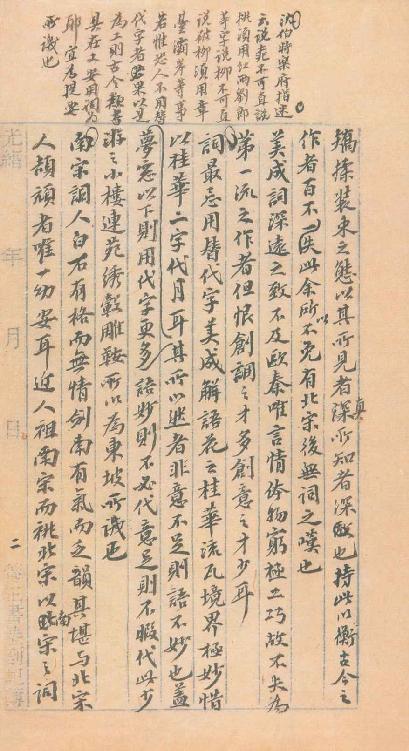 沈伯時樂府指迷
云說桃不可直說
桃須用紅雨劉郎
等字說柳不可直
說破柳須用章
臺灞岸等事
若惟恐人不用替
代字者果以是
為工則古今類書
具在又安用詞為
耶宜為提要
所譏也
矯揉裝束之態以其所見者真所知者深故也持此以衡古今之
作者百不一失此余所以不免有北宋後無詞之嘆也
美成詞深遠之致不及歐秦唯言情體物窮極工巧故不失為
第一流之作者但恨創調之才多創意之才少耳
詞最忌用替代字美成解語花云桂華流瓦境界極妙惜
以桂華二字代月耳其所以然者非意不足則語不妙也蓋
夢窗以下則用代字更多語妙則不必代意足則不暇代此少
游之小樓連苑繡轂雕鞍所以為東坡所譏也
南宋詞人白石有格而無情劍南有氣而乏韻其堪與北宋
人頡頏者唯一幼安耳近人祖南宋而祧北宋以南宋之詞
光緒 年 月 日 二